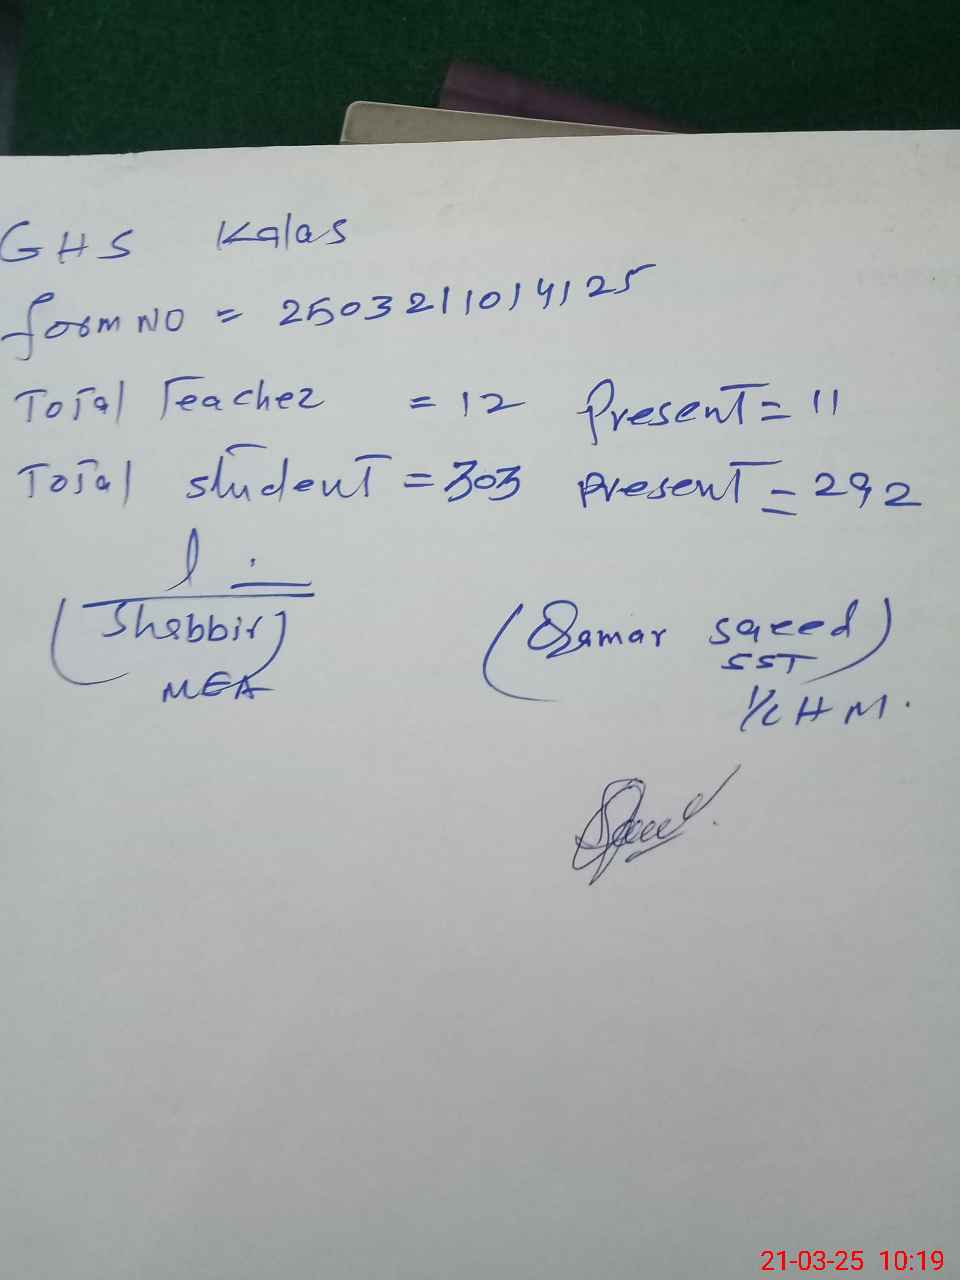 GHS Kalas
form NO = 2503211014125
Total Teacher = 12 Present = 11
Total student = 303 present = 292
(Shabbir)
MEA
(Qamar saeed)
SST
I/C H M.
21-03-25 10:19